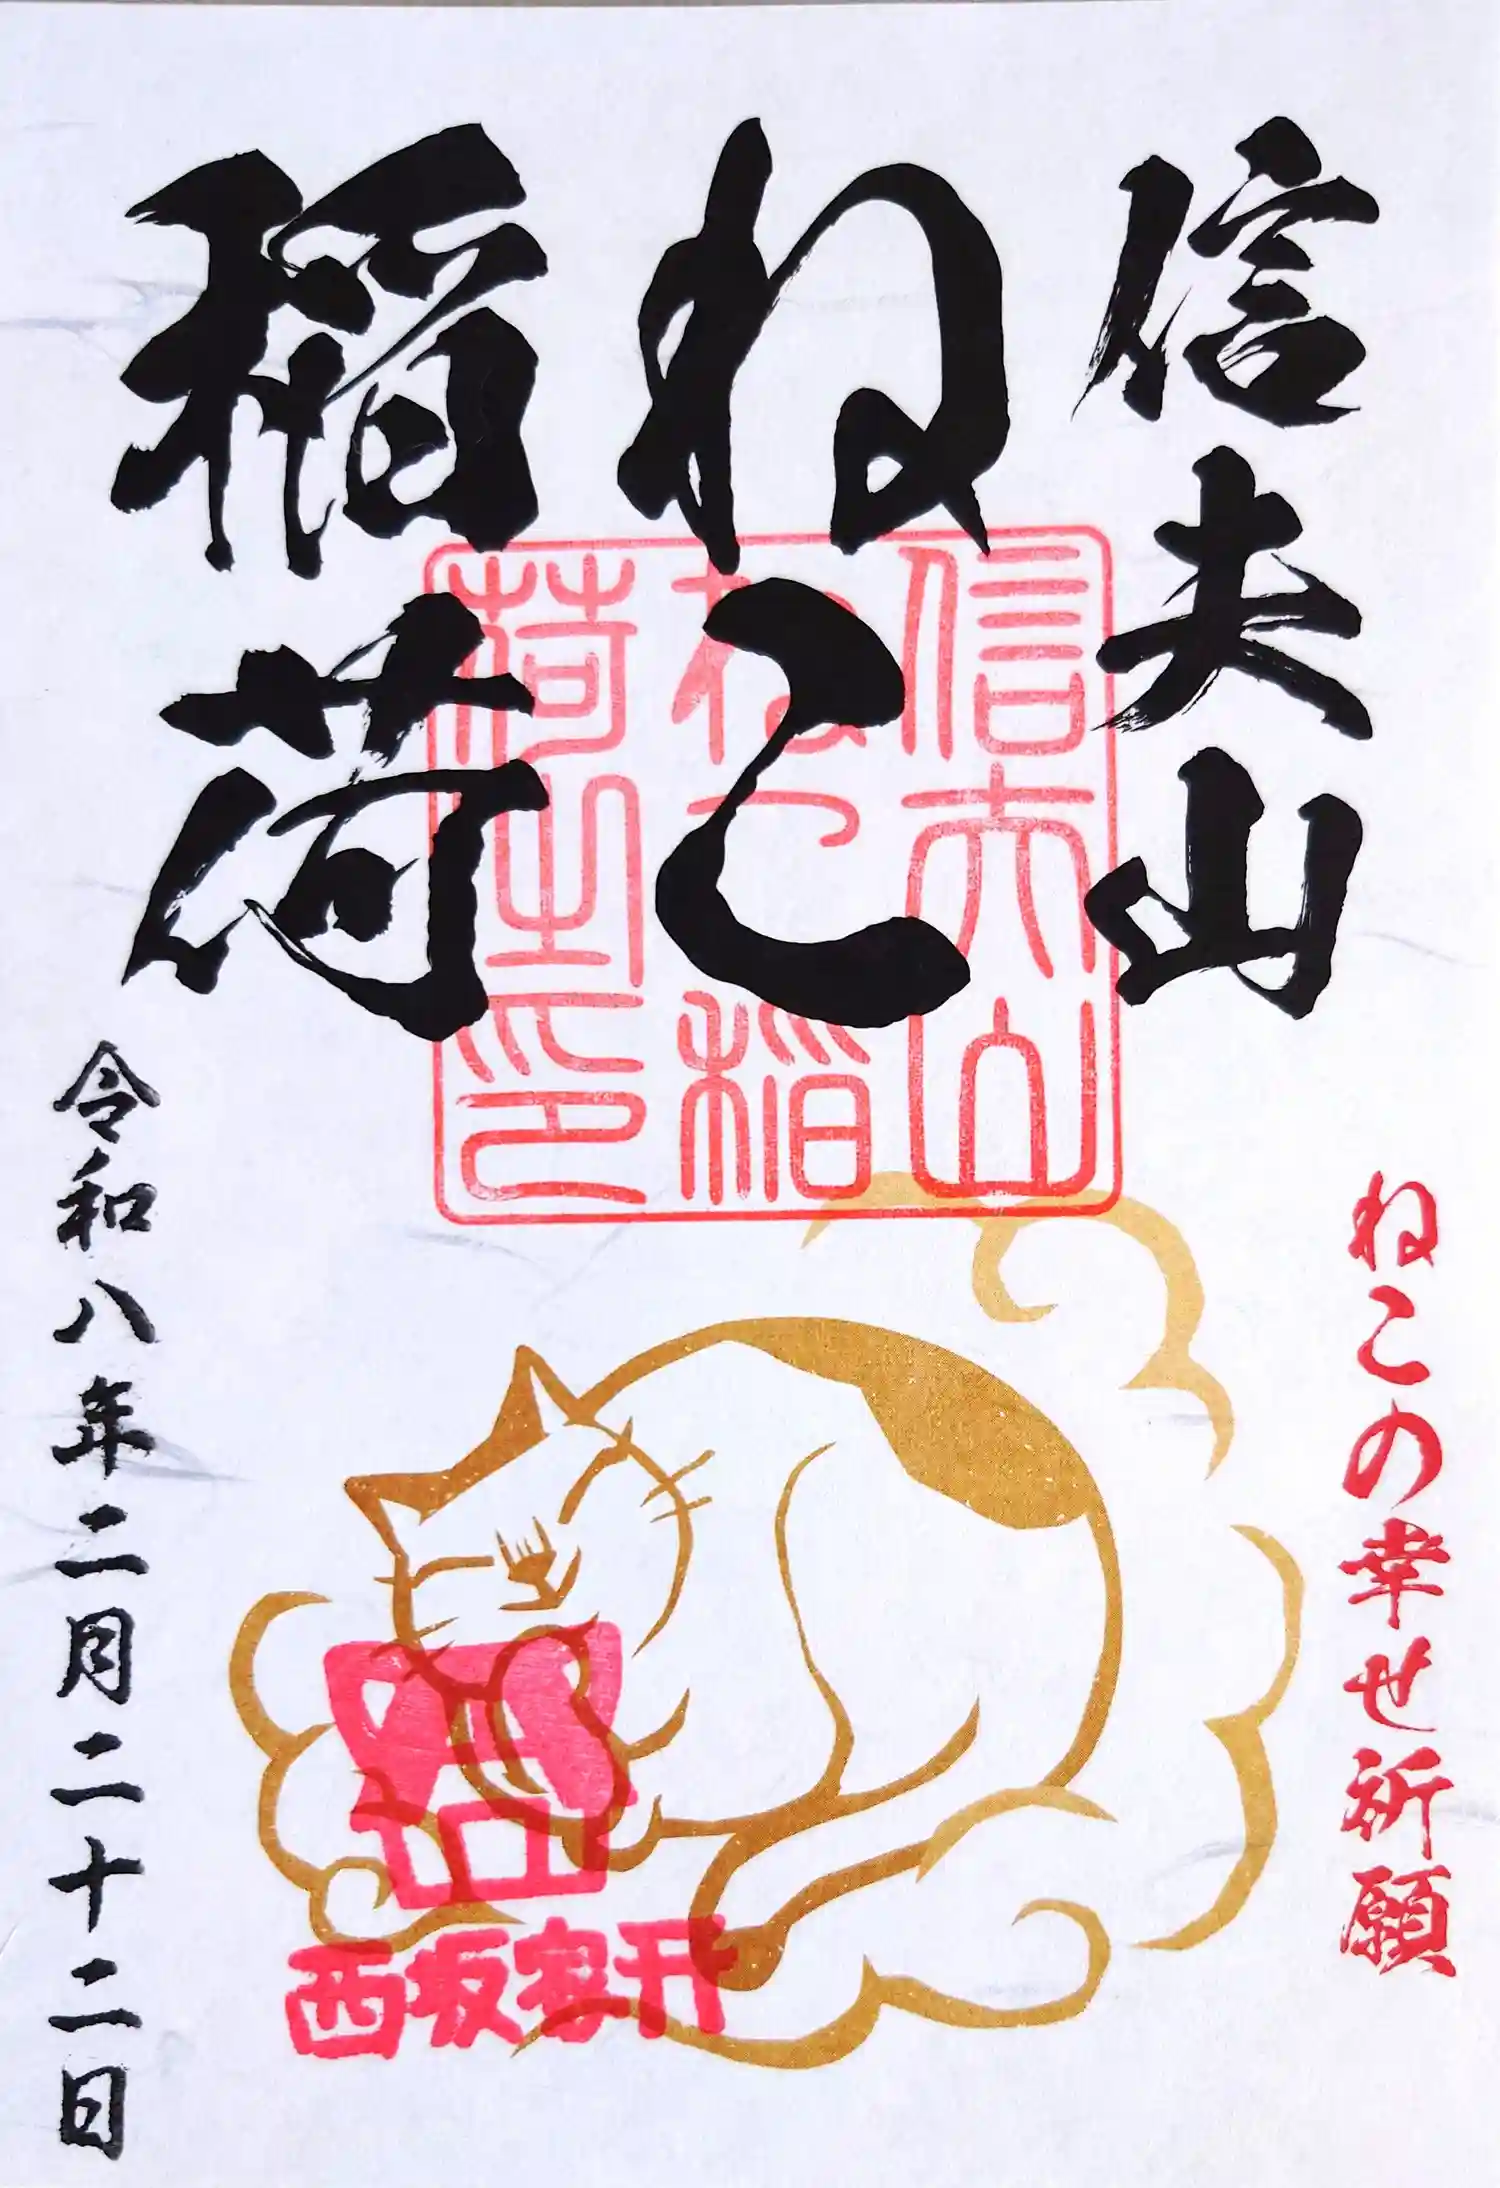 信夫山
ねこ
稲荷
信夫山
ねこ稲
荷山之印
ねこの幸せ祈願
令和八年二月二十二日
西坂家升